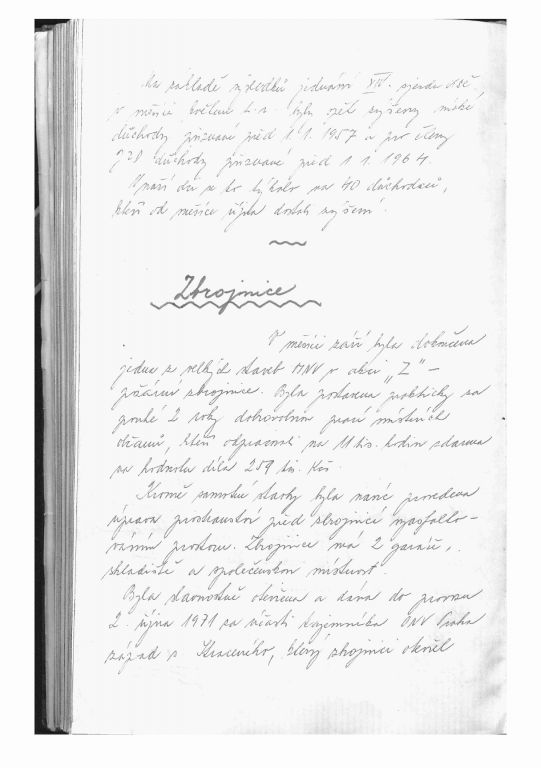 Na základě výsledků jednání XIV. sjezdu KSČ,
v měsíci květnu t. r. byly opět zvýšeny nízké
důchody přiznané před 1. 1. 1957 a pro členy
JZD důchody přiznané před 1. 1. 1964.
V naší obci se to týkalo na 40 důchodců,
kteří od měsíce října dostali zvýšení.
Zbrojnice
V měsíci září byla dokončena
jedna z velkých staveb MNV v akci „Z" –
požární zbrojnice. Byla postavena prakticky za
pouhé 2 roky dobrovolnou prací místních
občanů, kteří odpracovali na 11 tis. hodin zdarma
na hodnotu díla 259 tis. Kčs.
Kromě samotné stavby byla navíc provedena
úprava prostranství před zbrojnicí vyasfalto-
váním prostoru. Zbrojnice má 2 garáže,
skladiště a společenskou místnost.
Byla slavnostně otevřena a dána do provozu
2. října 1971 za účasti tajemníka ONV Praha
západ s. , který zbrojnici okolí